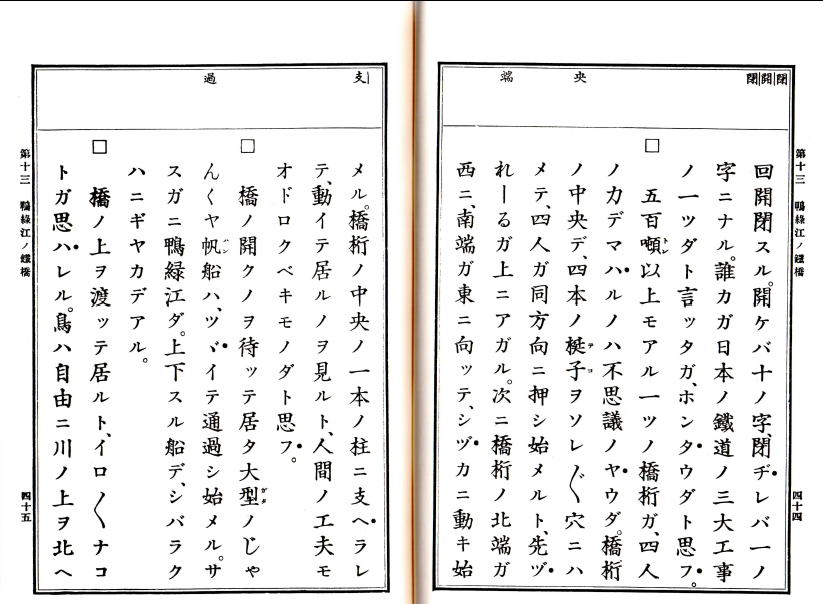 閉 開 閉
央
端
第十三 鴨綠江ノ鐵橋
四十四
回開閉スル。開ケバ十ノ字、閉ヂレバ一ノ
字ニナル。誰カガ日本ノ鐵道ノ三大工事
ノ一ツダト言ッタガ、ホンタウダト思フ。
□ 五百噸以上モアル一ツノ橋桁ガ、四人
トン
ノ力デマハルノハ不思議ノヤウダ。橋桁
ノ中央デ、四本ノ梃子ヲソレ〲穴ニハ
テコ
メテ、四人ガ同方向ニ押シ始メルト、先ヅ
れーるガ上ニアガル。次ニ橋桁ノ北端ガ
西ニ、南端ガ東ニ向ッテ、シヅカニ動キ始
支
過
メル。橋桁ノ中央ノ一本ノ柱ニ支ヘラレ
テ、動イテ居ルノヲ見ルト、人間ノ工夫モ
オドロクベキモノダト思フ。
□ 橋ノ開クノヲ待ッテ居タ大型ノじゃ
ガタ
んくヤ帆船ハ、ツヾイテ通過シ始メル。サ
ハン
スガニ鴨緑江ダ。上下スル船デ、シバラク
ハニギヤカデアル。
□ 橋ノ上ヲ渡ッテ居ルト、イロ〱ナコ
トガ思ハレル。鳥ハ自由ニ川ノ上ヲ北ヘ
第十三 鴨綠江ノ鐵橋
四十五